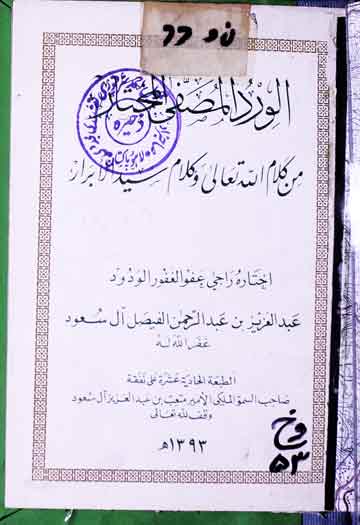 ن د ٦٦
الورد المصفى المختار
من كلام الله تعالى وكلام سيد الأبرار
ذخيره
اختاره راجي عفو الغفور الودود
عبد العزيز بن عبد الرحمن الفيصل آل سعود
غفر الله له
الطبعة الحادية عشرة على نفقة
صاحب السمو الملكي الأمير متعب بن عبد العزيز آل سعود
وفقه الله تعالى
١٣٩٣هـ
وخ
٥٣